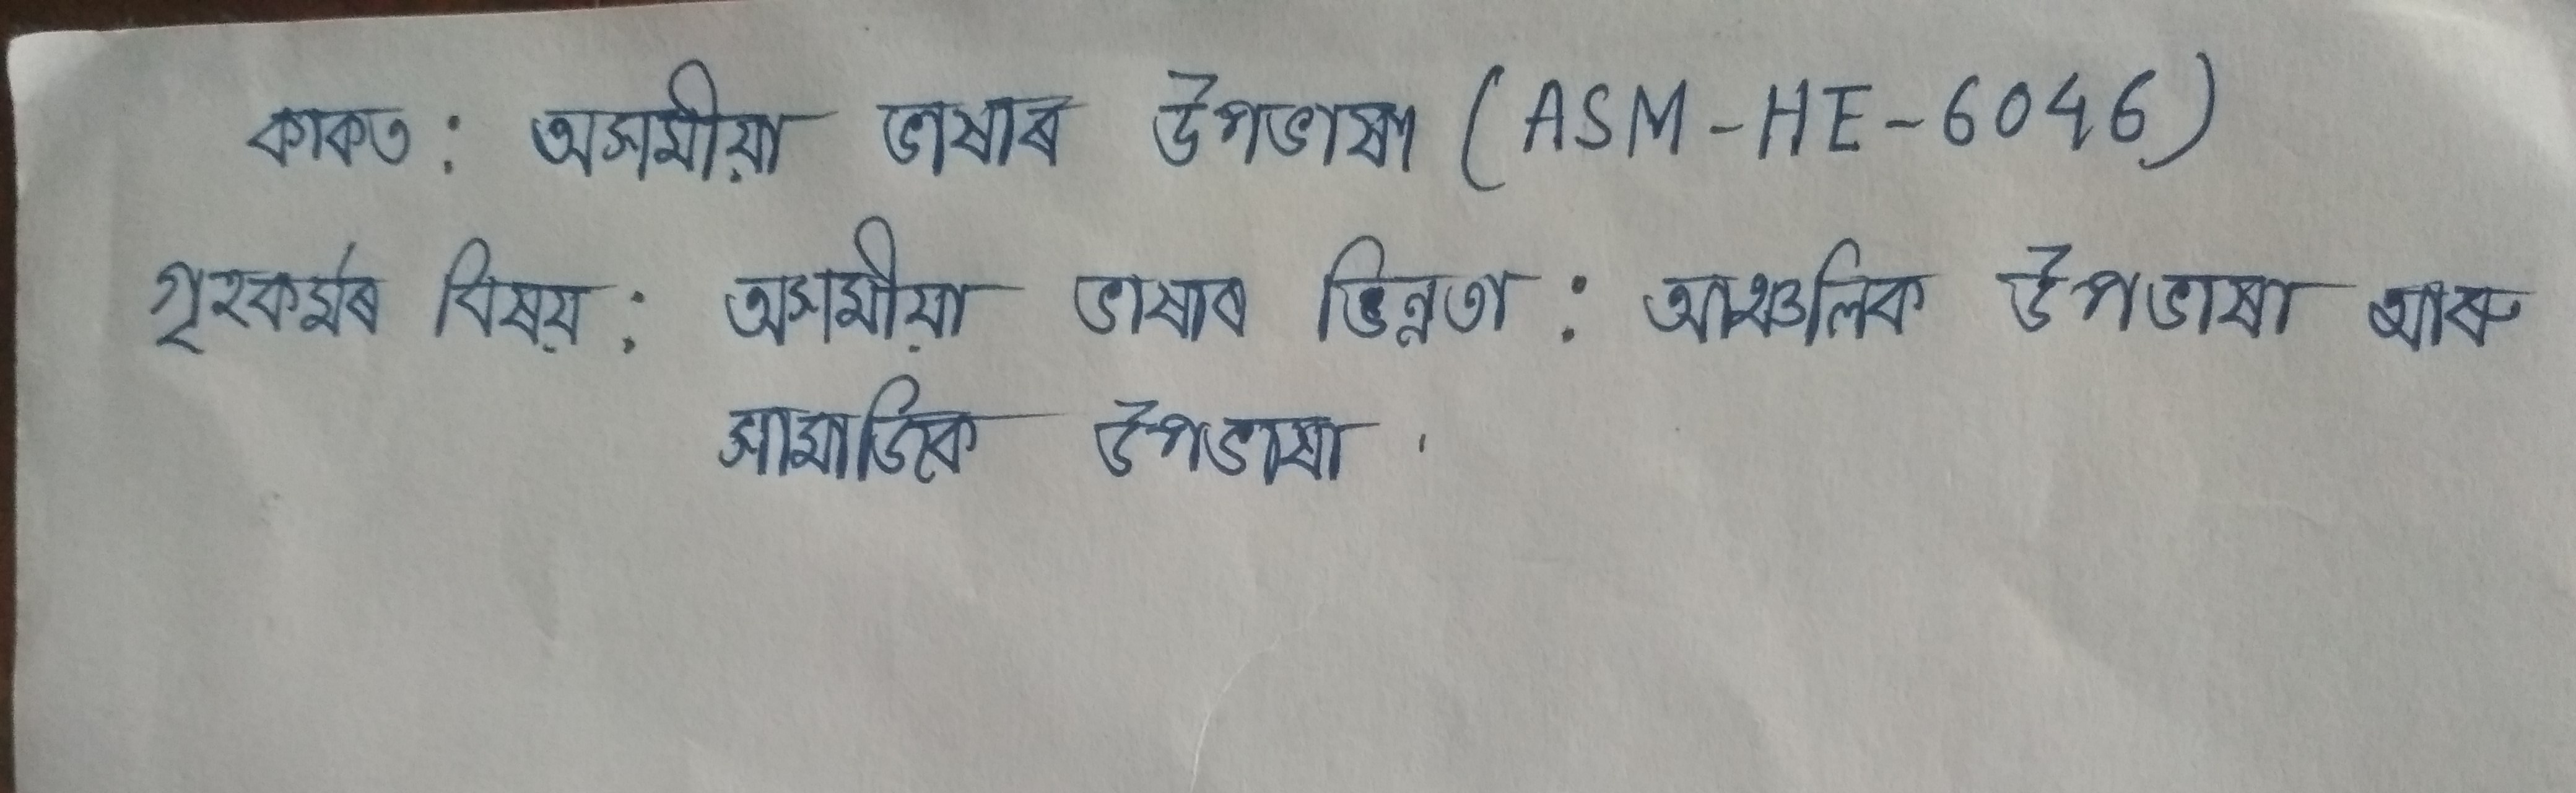 কাকত : অসমীয়া ভাষাৰ উপভাষা (ASM-HE-6046)
গৃহকৰ্মৰ বিষয় : অসমীয়া ভাষাৰ ভিন্নতা : আঞ্চলিক উপভাষা আৰু
সামাজিক উপভাষা